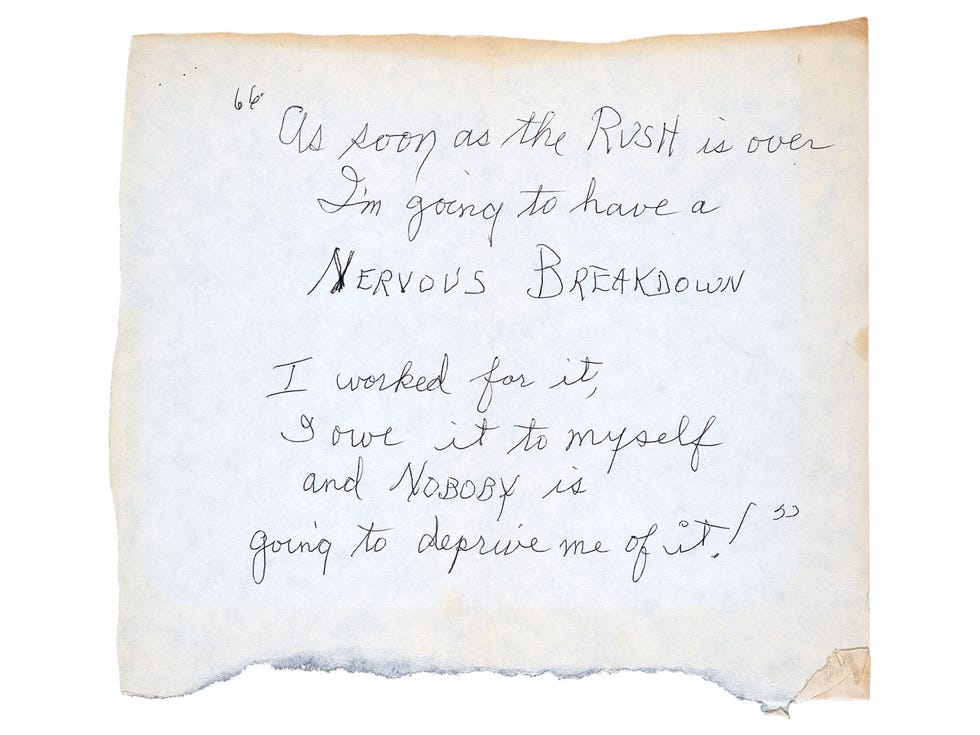 "As soon as the RUSH is over
I'm going to have a
NERVOUS BREAKDOWN
I worked for it,
I owe it to myself
and NOBOBY is
going to deprive me of it!"